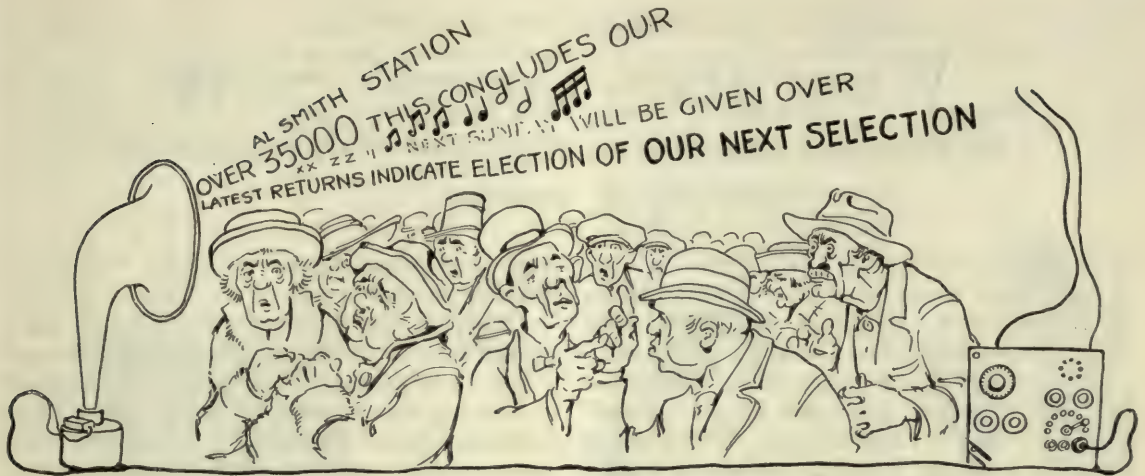 AL SMITH STATION
OVER 35000 THIS CONCLUDES OUR
XX ZZ NEXT SUNDAY WILL BE GIVEN OVER
LATEST RETURNS INDICATE ELECTION OF OUR NEXT SELECTION